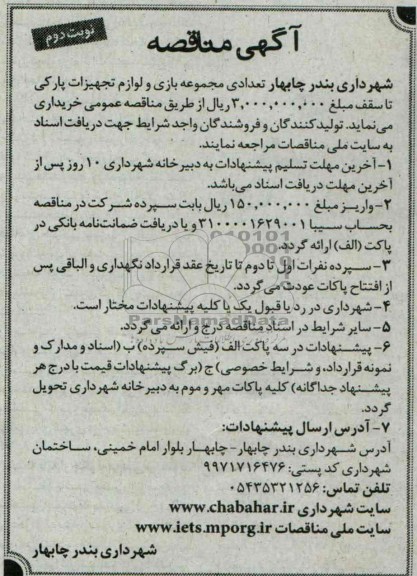 نوبت دوم
آگهی مناقصه
شهرداری بندر چابهار تعدادی مجموعه بازی و لوازم تجهیزات پارکی
تا سقف مبلغ ۳,۰۰۰,۰۰۰,۰۰۰ ریال از طریق مناقصه عمومی خریداری
می‌نماید. تولیدکنندگان و فروشندگان واجد شرایط جهت دریافت اسناد
به سایت ملی مناقصات مراجعه نمایند.
۱- آخرین مهلت تسلیم پیشنهادات به دبیرخانه شهرداری ۱۰ روز پس از
آخرین مهلت دریافت اسناد می‌باشد.
۲- واریز مبلغ ۱۵۰,۰۰۰,۰۰۰ ریال بابت سپرده شرکت در مناقصه
بحساب سیبا ۳۱۰۰۰۰۱۶۲۹۰۰۱ و یا دریافت ضمانت‌نامه بانکی در
پاکت (الف) ارائه گردد.
۳- سپرده نفرات اول تا دوم تا تاریخ عقد قرارداد نگهداری و الباقی پس
از افتتاح پاکات عودت می‌گردد.
۴- شهرداری در رد یا قبول یک یا کلیه پیشنهادات مختار است.
ParsNamadData
۵- سایر شرایط در اسناد مناقصه درج و ارائه می‌گردد.
۶- پیشنهادات در سه پاکت الف (فیش سپرده) ب (اسناد و مدارک و
نمونه قرارداد، و شرایط خصوصی) ج (برگ پیشنهادات قیمت با درج هر
پیشنهاد جداگانه) کلیه پاکات مهر و موم به دبیرخانه شهرداری تحویل
گردد.
۷- آدرس ارسال پیشنهادات:
آدرس شهرداری بندر چابهار- چابهار بلوار امام خمینی، ساختمان
شهرداری کد پستی: ۹۹۷۱۷۱۶۴۷۶
تلفن تماس: ۰۵۴۳۵۳۲۱۲۵۶
سایت شهرداری www.chabahar.ir
سایت ملی مناقصات www.iets.mporg.ir
شهرداری بندر چابهار